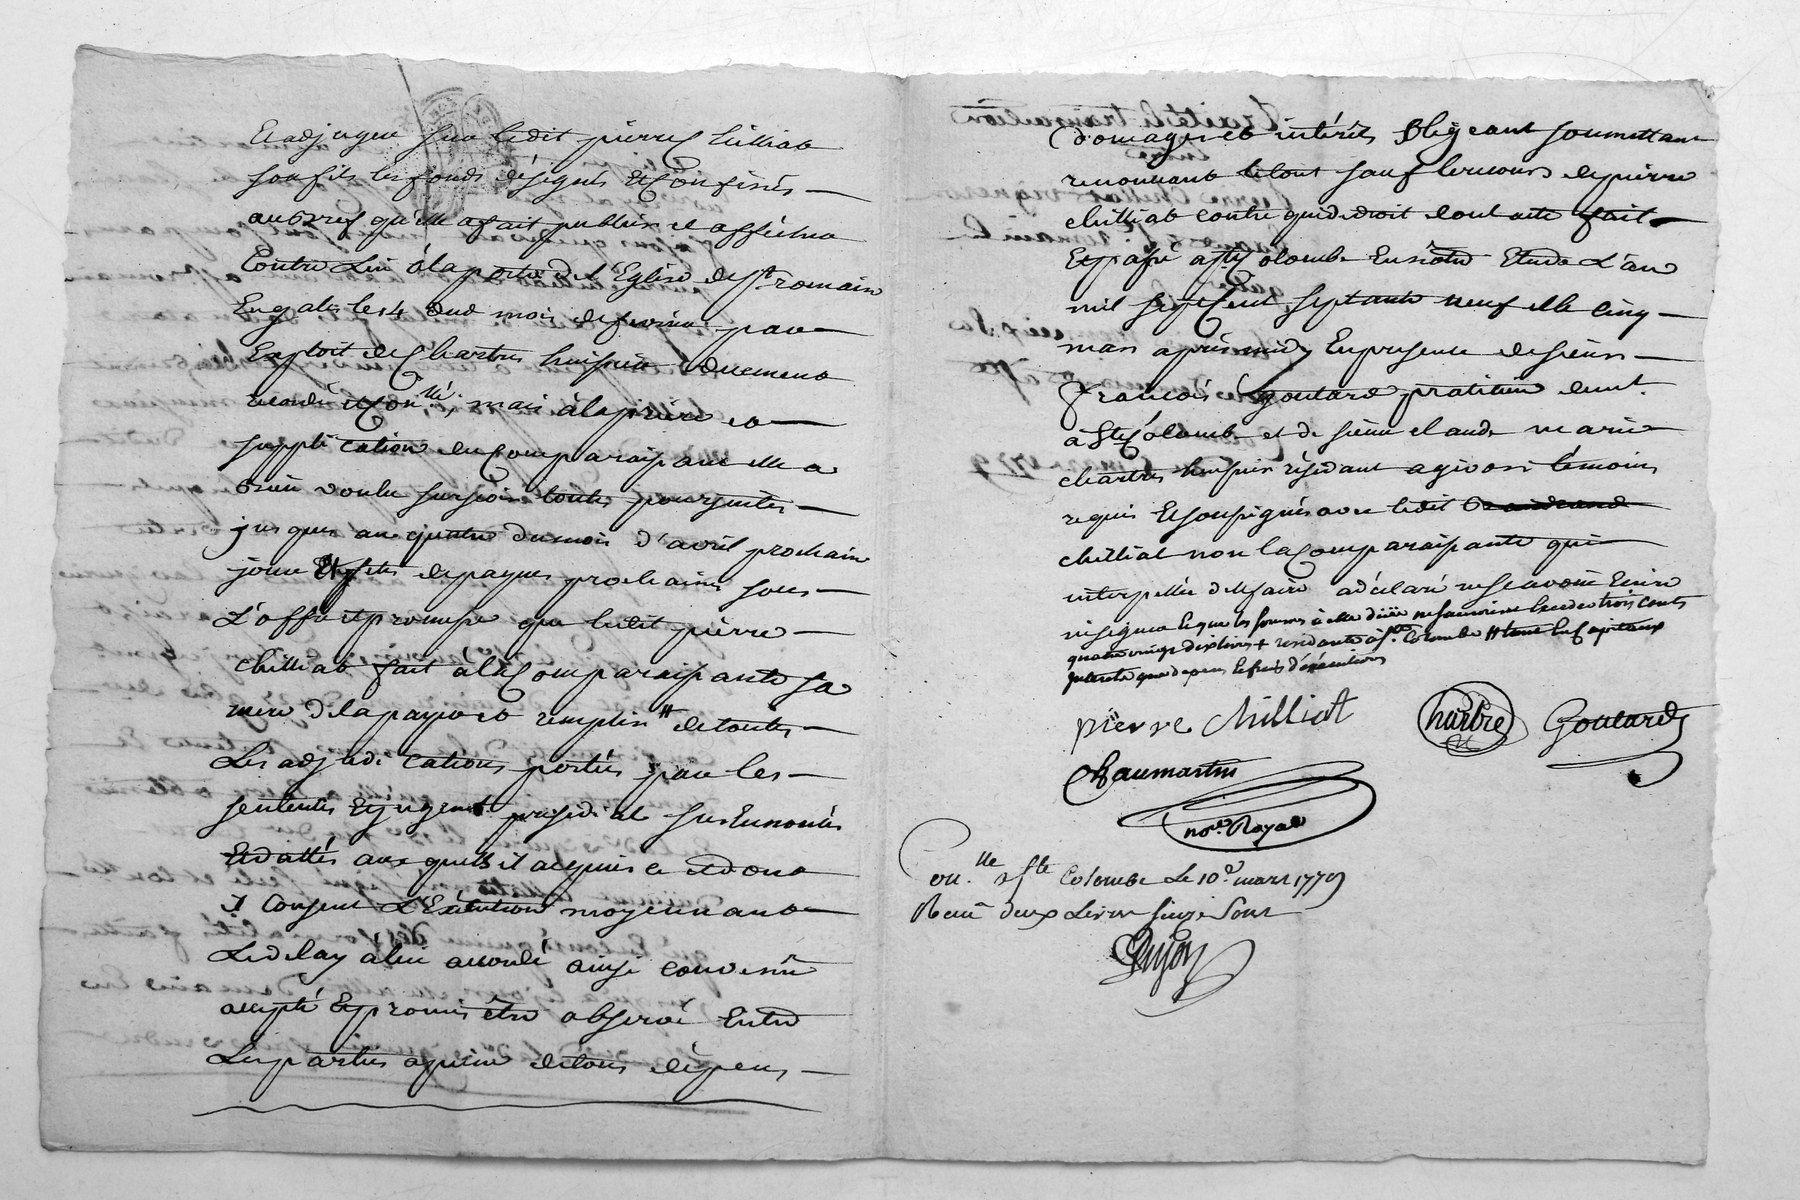 Et adjugea sur ledit pierre Chilliat
son fils les fonds désignés et confinés
au bref qu'elle a fait publier et afficher
Contre Lui à la porte de L'Eglise de St. romain
En gals le 14 dud mois de fevrier par
Exploit de Chartres huissier duement
recordé et Con.llé, mais à la prière et
supplication du Comparaissant elle a
bien voulu surseoir toutes poursuittes
jusques au quatre du mois d'avril prochain
jour et fete de paques prochaine sous
L'offre et promesse que ledit pierre
Chilliat fait à la Comparaissante sa
mère de la payer et remplir # de toutes
Les adjudications portées par les
sentences et jugement presidial sus Enoncés
Et dattés aux quels il acquiesce et dont
il Consent L'Exécution moyennant
Le delay à lui accordé ainsi convenu
accepté Et promis être observé Entre
Les parties à peine de tous dépens
domages et intérêts obligeant soumettant
renonceant le tout sauf le recours de pierre
chilliat contre qui de droit dont acte fait
Et passé à Ste Colombe En nôtre Etude L'an
mil sept Cent septante neuf et le Cinq
mars après midy En presence de sieurs
François Goutard praticien demt.
à Ste Colombe et de sieur claude marie
chartres huissier résidant a givors témoins
requis Et soussignés avec ledit
chilliat non la Comparaissante qui
interpellée de le faire a déclaré ne sçavoir Ecrire
ni signer Et que les sommes à elle düe ne sauroient Exceder trois cents
quatre vingt dix livres + residante à Ste. Colombe # tant En Capitaux
interets que depens et frais d'exécution
pierre Chilliat
Goutard
Chaumartin
no.re Royal
Con.lle à Ste Colombe Le 10e. mars 1779
Reçu deux Livres seize Sous
Guyon